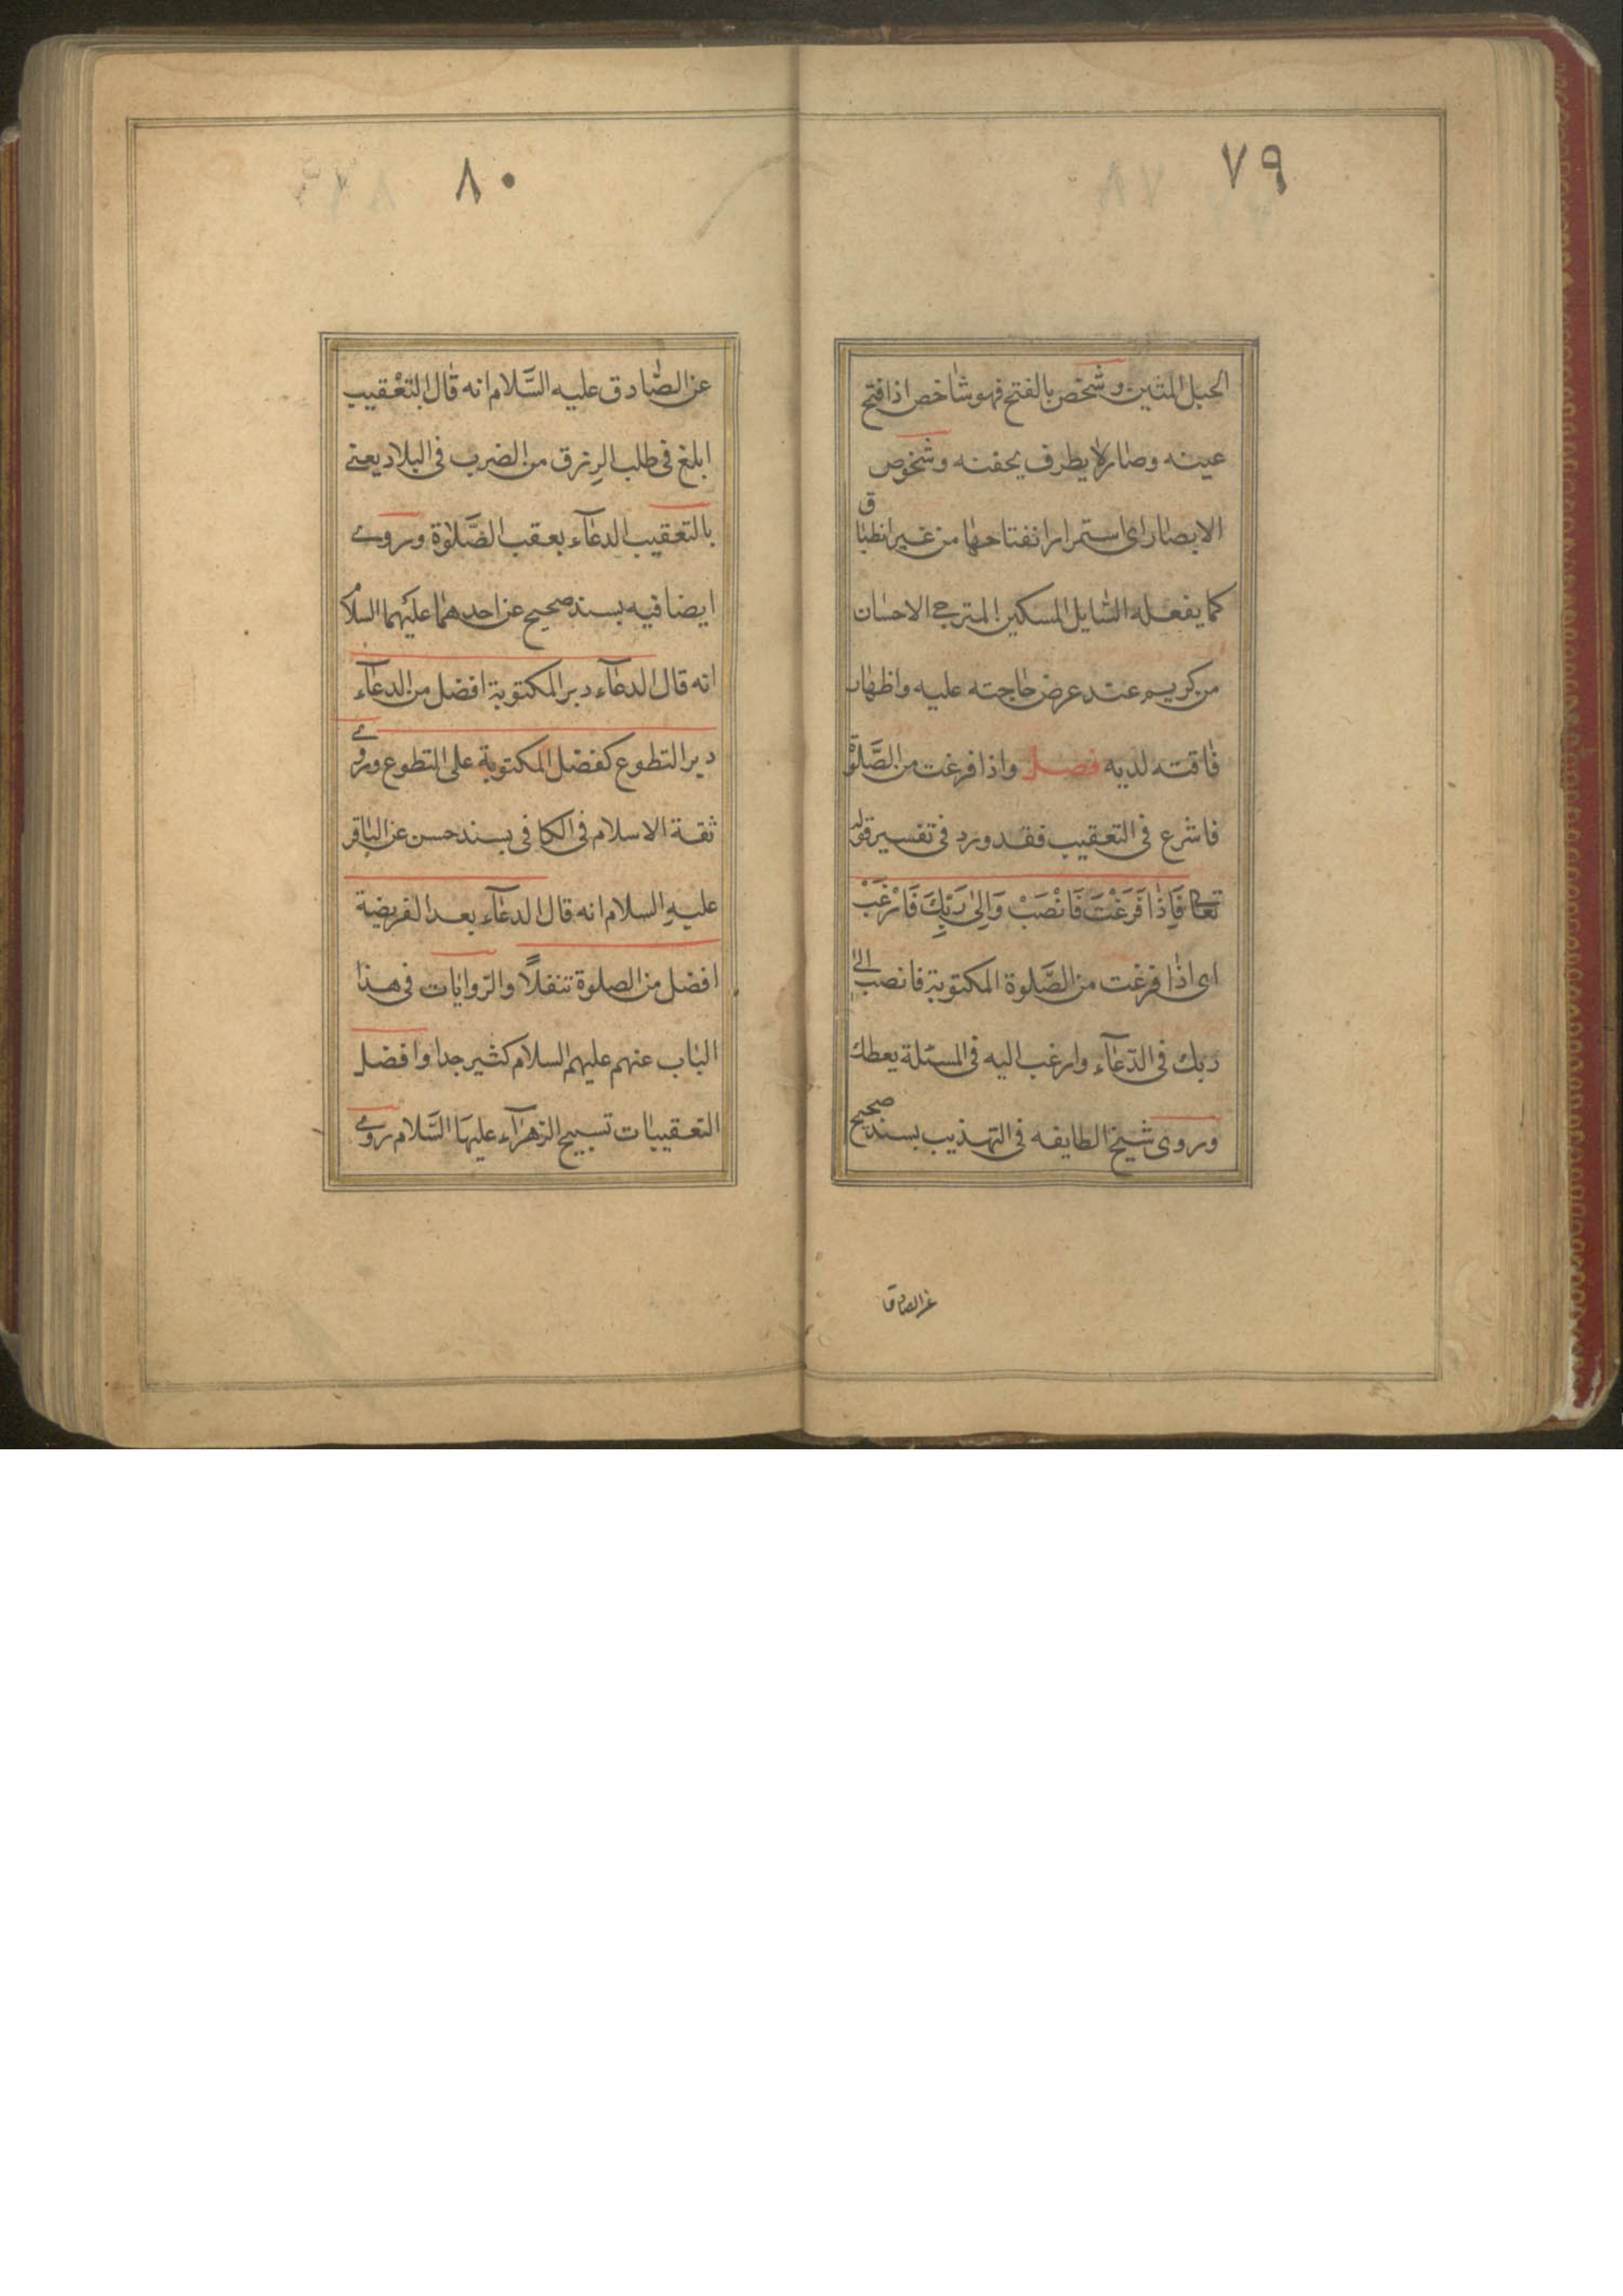 ٧٩
الحبل المتين وشخص بالفتح فهو شاخص اذا فتح
عينه وصار لا يطرف بجفنه وشخوص
الابصار اى استمرار انفتاحها من غير انطباق
كما يفعله السٰايل المسكين المترجے الاحسان
من كريم عند عرض حاجته عليه واظهار
فاقته لديه فصل واذا فرغت من الصَّلوة
فاشرع فى التعقيب فقد ورد فى تفسير قوله
تعالى فَاِذٰا فَرَغْتَ فَانْصَبْ وَاِلىٰ رَبِّكَ فَارْغَبْ
اى اذٰا فرغت من الصَّلوة المكتوبة فانصب الى
ربك فى الدّعآء وارغب اليه فى المسئلة يعطك
وروى شيخ الطايفه فى التهذيب بسند صحيح
عن الصادق
٨٠
عن الصّادق عليه السَّلام انه قال التعْقيب
ابلغ فى طلب الرِزق من الضرب فى البلاد يعنے
بالتعقيب الدعآء بعقب الصَّلوٰة وروے
ايضا فيه بسند صحيح عن احدهما عليهما السلام
انه قال الدعآء دبر المكتوبة افضل من الدعآء
دبر التطوع كفضل المكتوبة على التطوع وروے
ثقة الاسلام فى الكافى بسند حسن عن الباقر
عليهِ السلام انه قال الدعآء بعد الفريضة
افضل من الصلوة تنفلاً والرّوايات فى هذا
الباب عنهم عليهم السلام كثير جدا وافضل
التعقيبات تسبيح الزهرآء عليهَا السَّلام روے